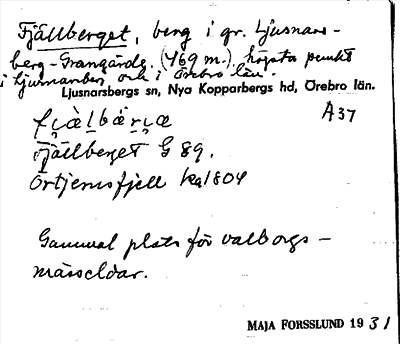 Fjällberget, berg i gr. Ljusnars-
berg-Grangärde. (469 m.), högsta punkt
i Ljusnarsberg och i Örebro län.
Ljusnarsbergs sn, Nya Kopparbergs hd, Örebro län.
A37
Fjällberget G 89.
Örtjernsfjell ka 1804
Gammal plats för valborgs-
mässeldar.
MAJA FORSSLUND 1931